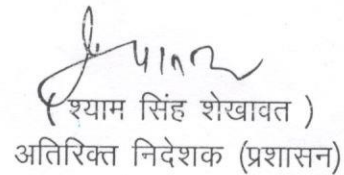 ( श्याम सिंह शेखावत )
अतिरिक्त निदेशक (प्रशासन)